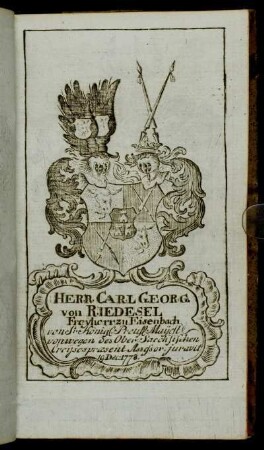 HERR CARL GEORG
von RIEDESEL
Freyherr zu Eisenbach
von Sr Königl. Preuß. Majest.
vonwegen des Ober Saechsischen
Creyses præsent. Assessor juravit
10 Dec. 1778.